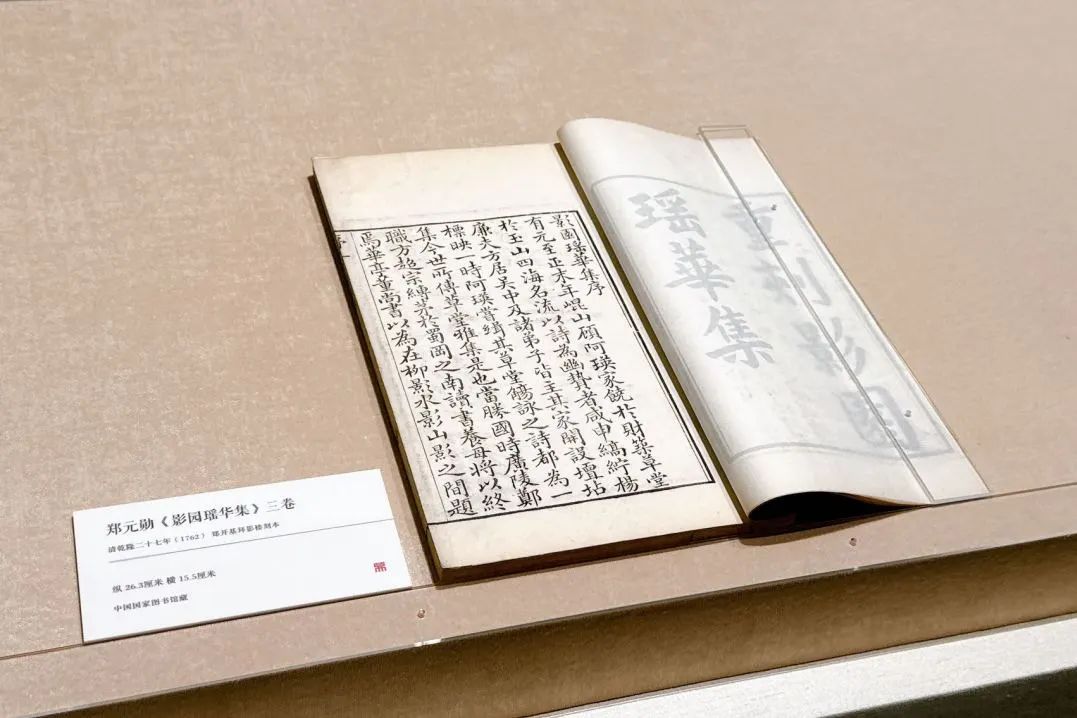 重刻影園
瑤華集
影園瑤華集序
有元至正末年崐山顧阿瑛家饒於財築草堂
於玉山四海名流以詩為幽贄者咸申縞紵楊
廉夫方居吴中及諸弟子皆主其家開設壇坫
標映一時阿瑛嘗緝其草堂觴詠之詩都為一
集今世所傳草堂雅集是也當勝國時廣陵鄭
職方超宗縛茅於蜀岡之南讀書養母將以終
焉華亭董尚書以為在柳影水影山影之間題
郑元勋《影园瑶华集》三卷
清乾隆二十七年（1762） 郑开基拜影楼刻本
纵 26.3厘米 横 15.5厘米
中国国家图书馆藏